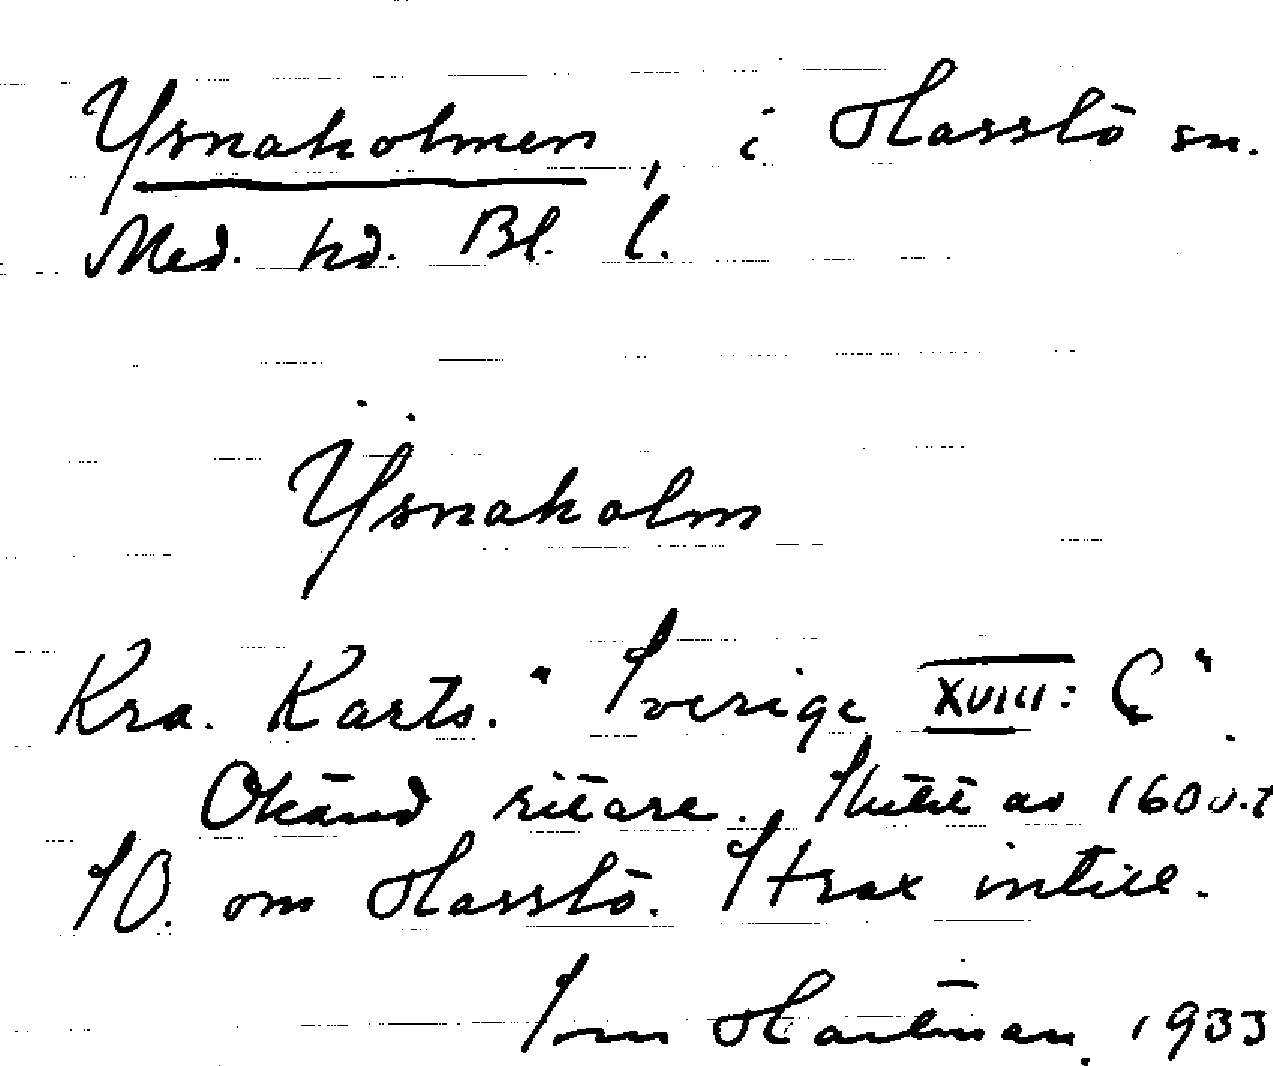 Ysnaholmen, i Hasslö sn.
Med. hd. Bl. l.
Ÿsnaholm
Kra. Karts. "Sverige XVIII: C".
Okänd ritare. Slutet av 1600-t
SO. om Hasslö. Strax intill.
Hartman 1933